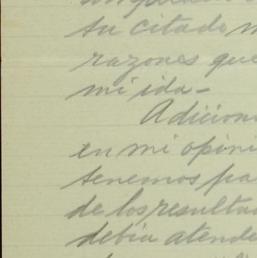 su citado
razones que
mi ida-
Adicion
en mi opini
tenemos pa
de los resulta
debía atende